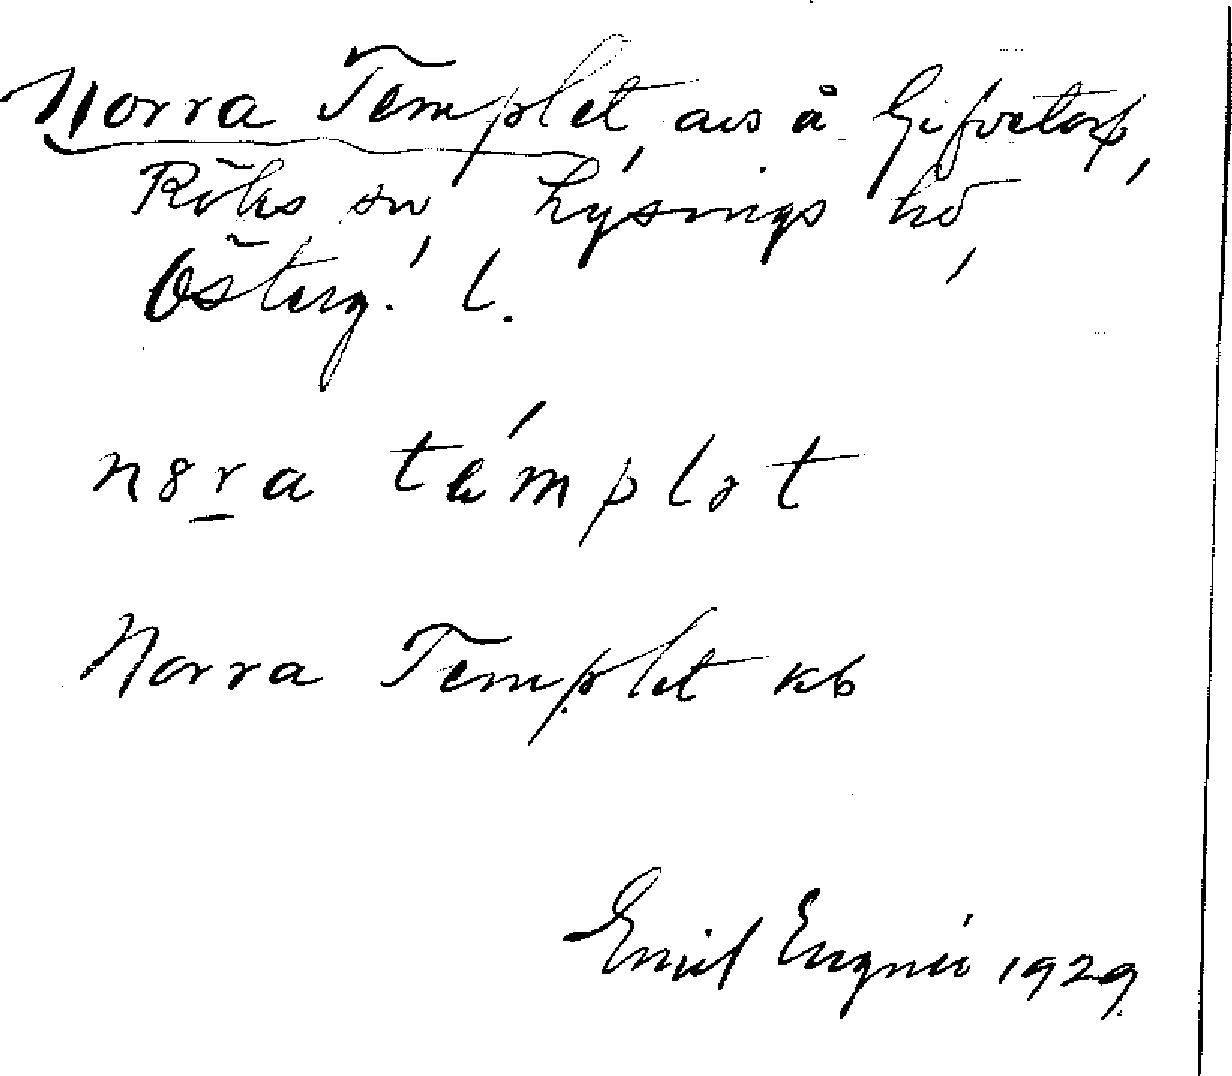 Norra Templet, avs å Gifvetorp,
Röks sn, Lysings hd,
Österg. l.
n8ra témplət
Norra Templet kb
Emil Engnér 1929